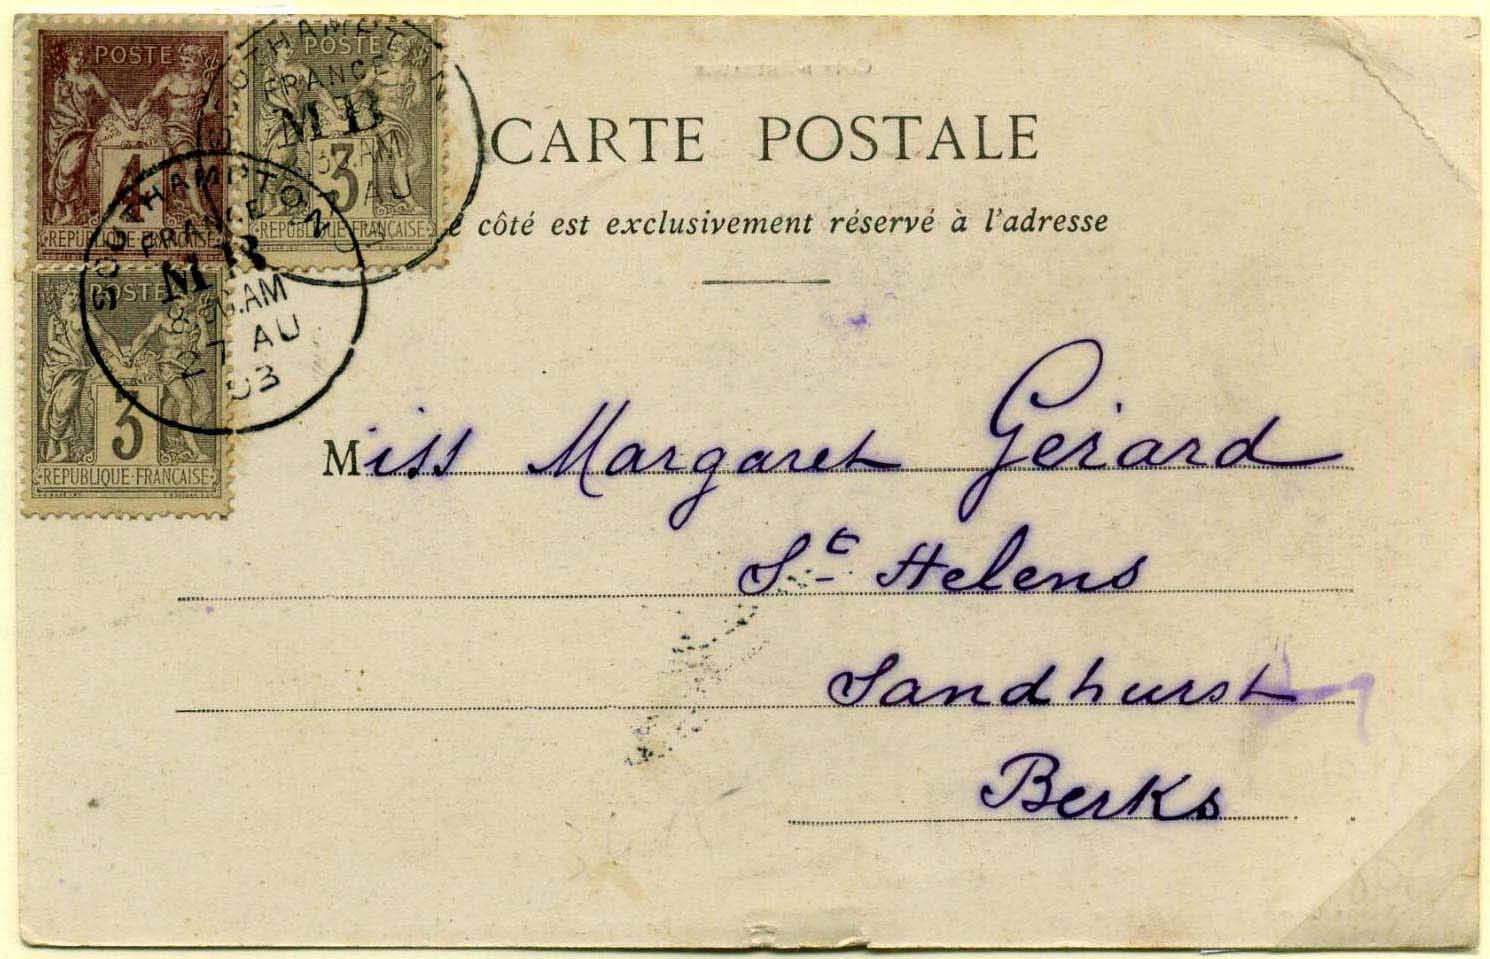 POSTE
4
REPUBLIQUE FRANCAISE
POSTE
3
REPUBLIQUE FRANCAISE
POSTE
3
REPUBLIQUE FRANCAISE
FRANCE
M B
AM
7 AU
SOUTHAMPTON
FRANCE
M B
AM
27 AU
03
CARTE POSTALE
côté est exclusivement réservé à l'adresse
Miss Margaret Gérard
St Helens
Sandhurst
Berks